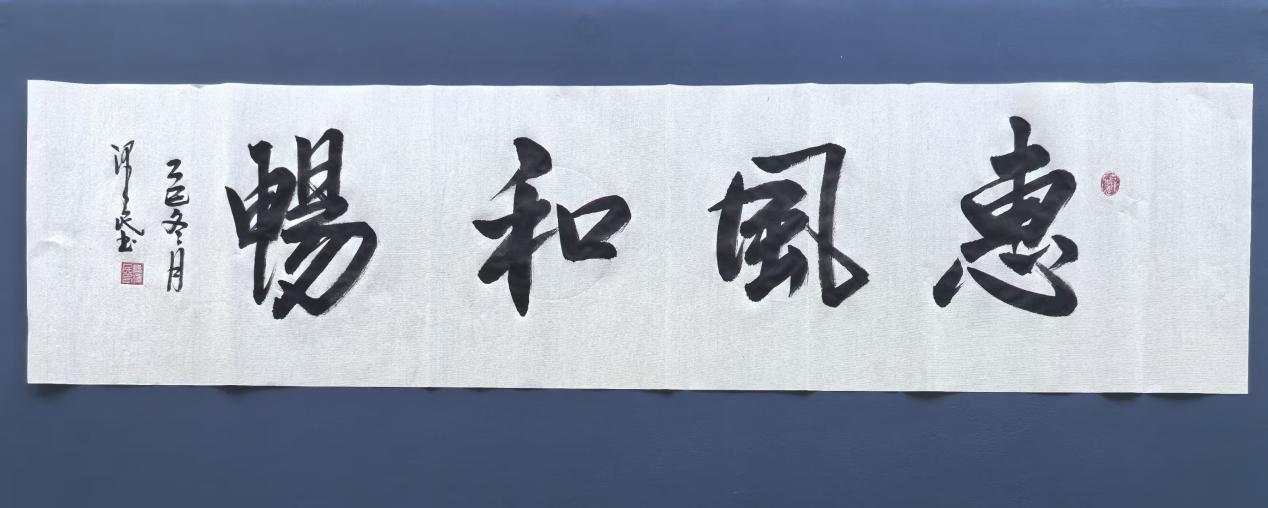 惠風和暢
乙巳冬月